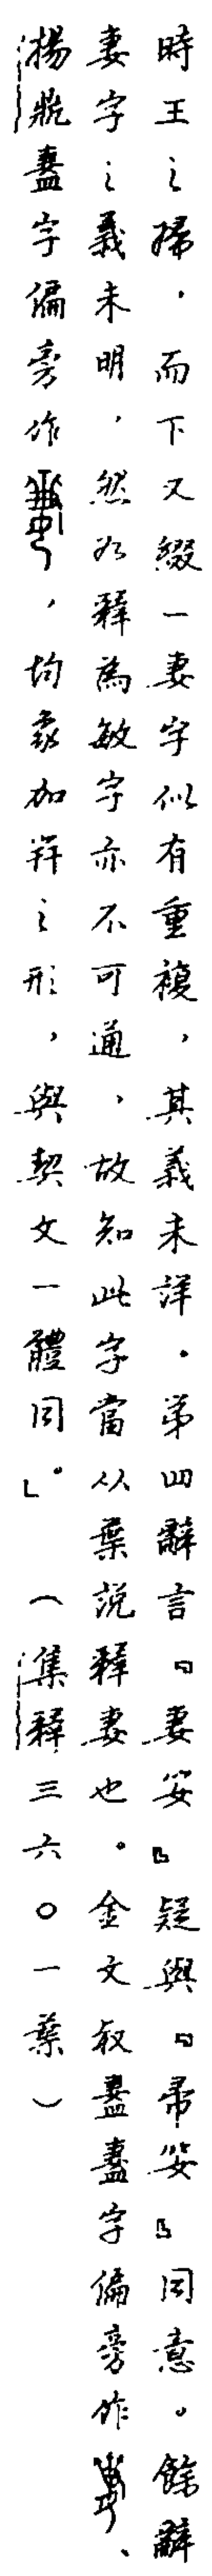 時王之婦，而下又綴一妻字似有重複，其義未詳。第四辭言『妻姿』疑與『帚姿』同意。餘辭
妻字之義未明，然以釋為敏字亦不可通，故知此字當从葉說釋妻也。金文叔盠盠字偏旁作、
揚鼎盠字偏旁作，均象加笄之形，與契文一體同。」（集釋三六〇一葉）